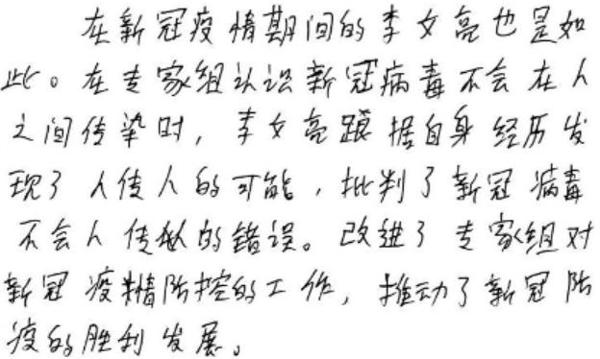 在新冠疫情期间的李文亮也是如
此。在专家组认识新冠病毒不会在人
之间传染时，李文亮跟据自身经历发
现了人传人的可能，批判了新冠病毒
不会人传人的错误。改进了专家组对
新冠疫情防控的工作，推动了新冠防
疫的胜利发展。